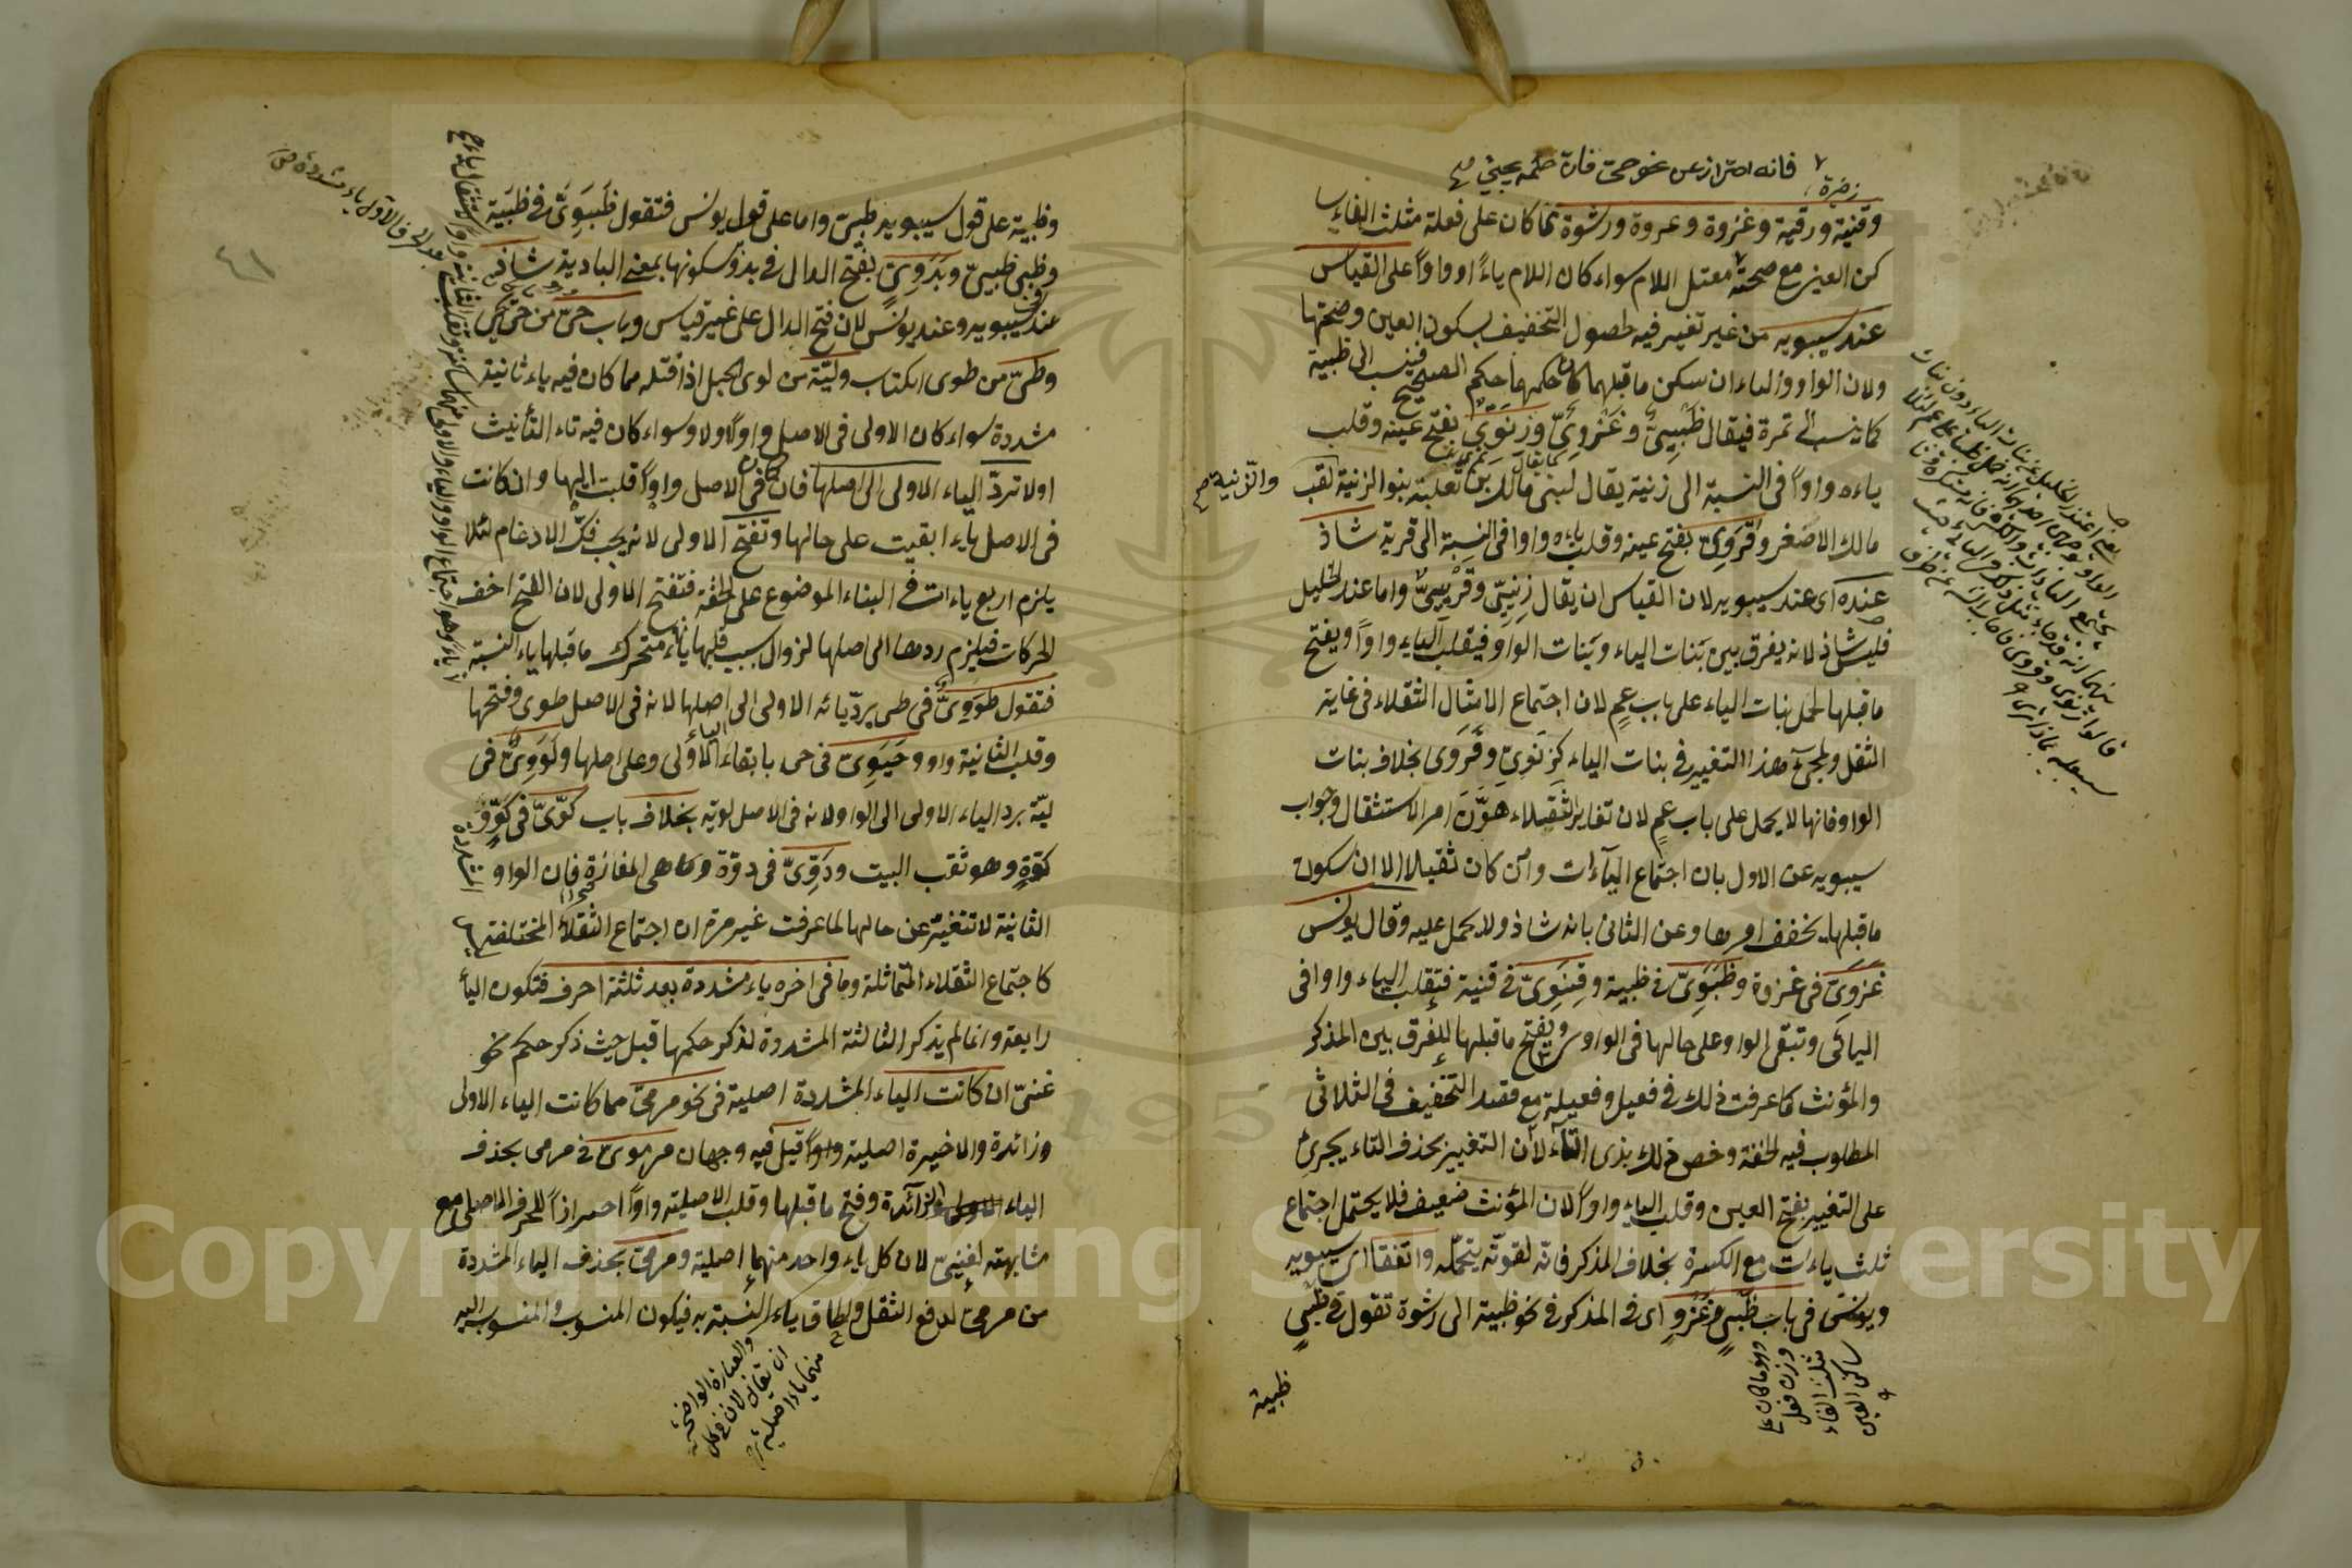 فانه احتراز عن نحو حى فان حكمه يجيئ صح
وقنية ورقية وغزوة وعروة ورشوة مما كان على فعلة مثلث الفاء سا
كن العين مع صحته معتل اللام سواء كان اللام ياءً او واواً على القياس
عند سيبويه من غير تغيير فيه لحصول التخفيف بسكون العين وصحتها
ولان الواو والياء ان سكن ما قبلهما كان حكمهما حكم الصحيح فينسب الى ظبية
كما نسب الى تمرة فيقال ظَبْيِىٌّ وغَزْوِىٌّ وزِنَوِىٌّ بفتح عينه وقلب
ياءه واواً فى النسبة الى زنية يقال لبنى مالك بن ثعلبة بنو الزنية لقب
والزنية صح
مالك الاصغر وقَرَوِىٌّ بفتح عينه وقلب ياءه واوا فى النسبة الى قرية شاذ
عنده اى عند سيبويه لان القياس ان يقال زِنْيِىّ وقَرْيِىّ واما عند الخليل
فليس شاذ لانه يفرق بين بنات الياء وبنات الواو فيقلب الياء واواً ويفتح
ما قبلها لحمل بنات الياء على باب عمٍ لان اجتماع الامثال الثقلاء فى غاية
الثقل ولمجئ هذا التغيير فى بنات الياء كزِنَوِىّ وقَرَوِى بخلاف بنات
الواو فانها لا يحمل على باب عمٍ لان تغاير الثقيلاء هَوَّنَ امر الاستثقال وجواب
سيبويه عن الاول بان اجتماع الياءات وان كان ثقيلا الا ان سكون
ما قبلها يخفف امرها وعن الثانى بانه شاذ ولا يحمل عليه وقال يونس
غَزَوِىّ فى غزوة وظَبَوِىّ فى ظبية وقِنَوِىّ فى قنية فتقلب الياء واوا فى
اليائى وتبقى الواو على حالها فى الواوى ويفتح ما قبلها للفرق بين المذكر
والمؤنث كما عرفت ذلك فى فعيل وفعيلة مع فقد التخفيف فى الثلاثى
المطلوب فيه الخفة وخص ذلك بذى التاء لان التغيير بحذف التاء يجرئ
على التغيير بفتح العين وقلب الياء واواً لان المؤنث ضعيف فلا يحتمل اجتماع
ثلث ياءات مع الكسرة بخلاف المذكر فانه لقوته يتحمله واتفقا اى سيبويه
ويونس فى باب ظَبْىٍ وغَزْوٍ اى فى المذكر فى نحو ظبية الى رشوة تقول فى ظَبْىٍ
وهو ما كان على
وزن فعل
مثلث الفاء
ساكن العين
ظبية
وظبية على قول سيبويه ظبيىّ واما على قول يونس فتقول ظَبَوِىّ فى ظَبْيَة
وظبى ظبيىّ وبَدَوِىّ بفتح الدال فى بدو سكونها بمعنى البادية شاذ
عند سيبويه وعند يونس لان فتح الدال على غير قياس وباب حىّ من حَىَّ يحيى
وطىّ من طوى الكتاب وليّة من لوى الحبل اذا فتله مما كان فيه ياء ثانية
مشددة سواء كان الاولى فى الاصل واواً اولا وسواء كان فيه تاء التأنيث
اولا تردّ الياء الاولى الى اصلها فان كان فى الاصل واواً قلبت اليها وان كانت
فى الاصل ياء ابقيت على حالها وتفتح الاولى لانه يجب فكّ الادغام لئلا
يلزم اربع ياءات فى البناء الموضوع على الخفة فتفتح الاولى لان الفتح اخف
الحركات فيلزم ردها الى اصلها لزوال سبب قلبها ياء متحرك ما قبلها ياء النسبة
فتقول طَوَوِىٌّ فى طى بردّ يائه الاولى الى اصلها لانه فى الاصل طوى وفتحها
وقلب الثانية واو وحَيَوِىّ فى حى بابقاء الياء الاولى وعلى اصلها ولَوَوِىٌّ فى
ليّة برد الياء الاولى الى الواو لانه فى الاصل لوية بخلاف باب كوّىّ فى كَوٍّ و
كوّةٍ وهو ثقب البيت ودَوِّىّ فى دوّة وهى المفازة فان الواو المشددة
الثانية لا تتغير عن حالها لما عرفت غير مرة ان اجتماع الثقلاء المختلفة ليس
كاجتماع الثقلاء المتماثلة وما فى اخره ياء مشددة بعد ثلثة احرف فتكون اليأ
رابعة وانما لم يذكر الثالثة المشددة لذكر حكمها قبل حيث ذكر حكم نحو
غنىّ ان كانت الياء المشددة اصلية فى نحو مرمىّ مما كانت الياء الاولى
وزائدة والاخيرة اصلية واواً قيل فيه وجهان مرموىّ فى مرمى بحذف
الياء الزائدة وفتح ما قبلها وقلب الاصلية واواً احترازاً للحرف الاصلى مع
مشابهته لغنىّ لان كل ياء واحد منهما اصلية ومرمىّ بحذف الياء المشددة
من مرمىّ لدفع الثقل والحاق ياء النسبة به فيكون المنسوب والمنسوب اليه
والعبارة الواضحة
ان يقال لان فى كل
منهما ياءا اصلية
٤١
Copyright © King Saud University
195